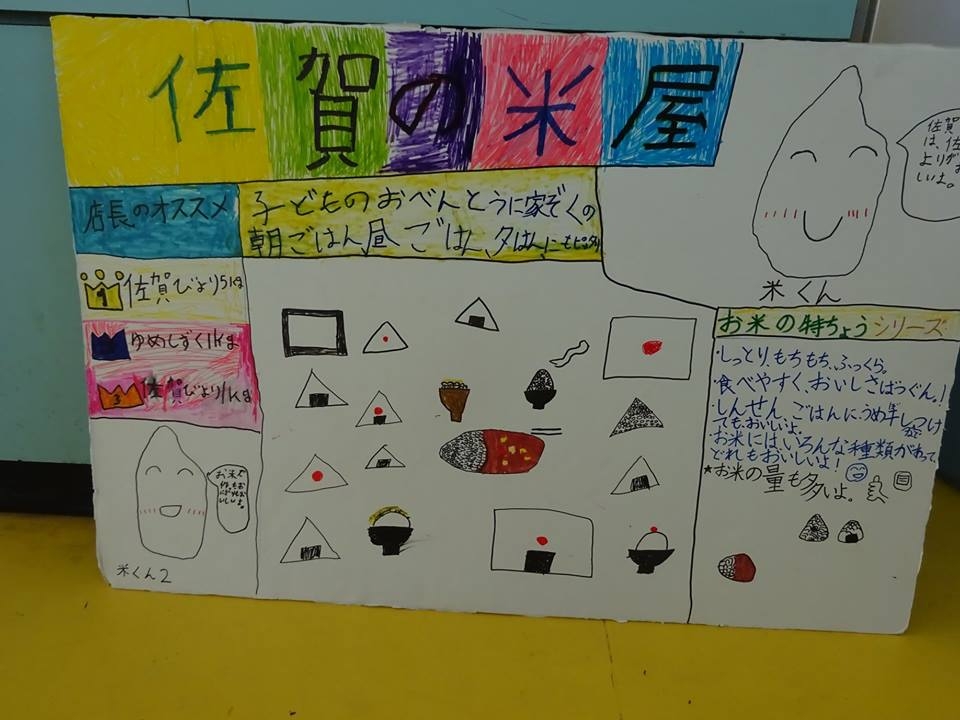 佐賀の米屋
店長のオススメ
子どものおべんとうに家ぞくの
朝ごはん昼ごはん、夕はんにもピッタリ
1 佐賀びより5kg
ゆめしずく1kg
3 佐賀びより1kg
米くん
佐賀
は、佐
より
しいよ。
お米の特ちょうシリーズ
・しっとり、もちもち、ふっくら。
・食べやすく、おいしさばつぐん。!
・しんせん、ごはんに、うめ干しつけ
ても、おいしいよ。
・お米には、いろんな種類があって
どれもおいしいよ!
★お米の量も多いよ。
お米で
米くん2